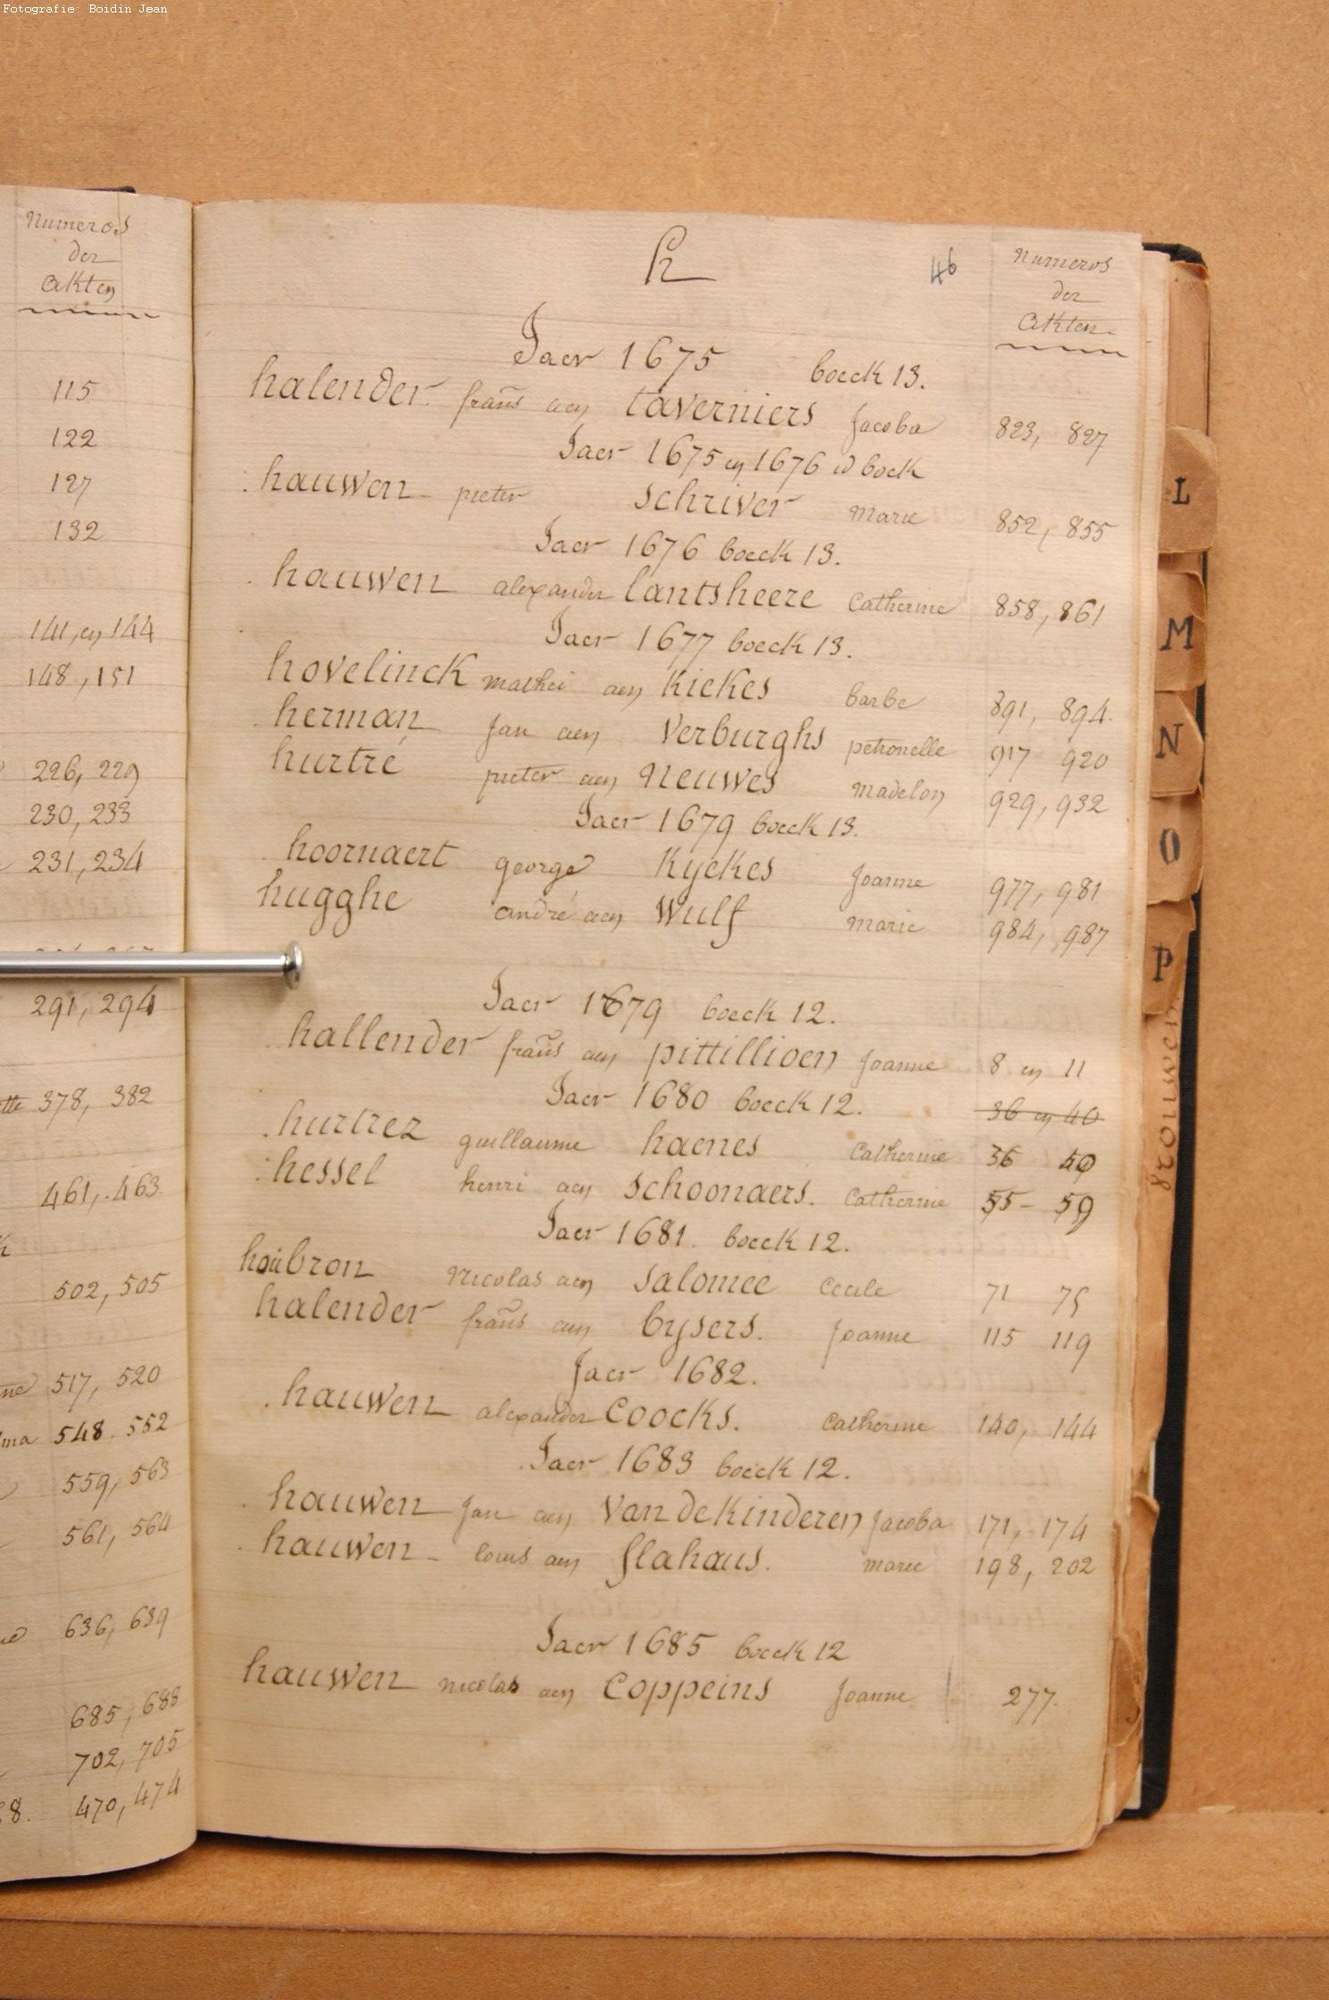 Fotografie: Boidin Jean
Numeros
der
akten
115
122
127
132
141, en 144
148, 151
226, 229
230, 233
231, 234
291, 294
378, 382
461, 463
502, 505
517, 520
548. 552
559, 563
561, 564
636, 639
685, 688
702, 705
8. 470, 474
h
46
Numeros
der
akten
Jaer 1675 boeck 13.
halender frans aen taverniers Jacoba 823, 827
Jaer 1675 en 1676 id boek
hauwen pieter schriver marie 852, 855
Jaer 1676 boeck 13.
hauwen alexander lantsheere Catherine 858, 861
Jaer 1677 boeck 13.
hovelinck mathei aen Kiekes barbe 891, 894.
herman Jan aen verburghs petronelle 917 920
hurtré pieter aen neuwes madelon 929, 932
Jaer 1679 boeck 13.
hoornaert george Kyekes Joanne 977, 981
hugghe andré aen Wulf marie 984, 987
Jaer 1679 boeck 12.
hallender frans aen pittillioen Joanne 8 en 11
Jaer 1680 boeck 12. 36 en 40
hurtrez guillaume haenes Catherine 36 40
hessel henri aen schoonaers. Catherine 55 - 59
Jaer 1681. boeck 12.
houbron Nicolas aen salomee Cecile 71 75
halender frans aen bysers. Joanne 115 119
Jaer 1682.
hauwen alexander Coocks. Catherine 140, 144
Jaer 1683 boeck 12.
hauwen Jan aen van de Kinderen Jacoba 171, 174
hauwen louis aen flahaus. marie 198, 202
Jaer 1685 boeck 12
hauwen nicolas aen Coppeins Joanne 277.
L
M
N
O
P
brouwer